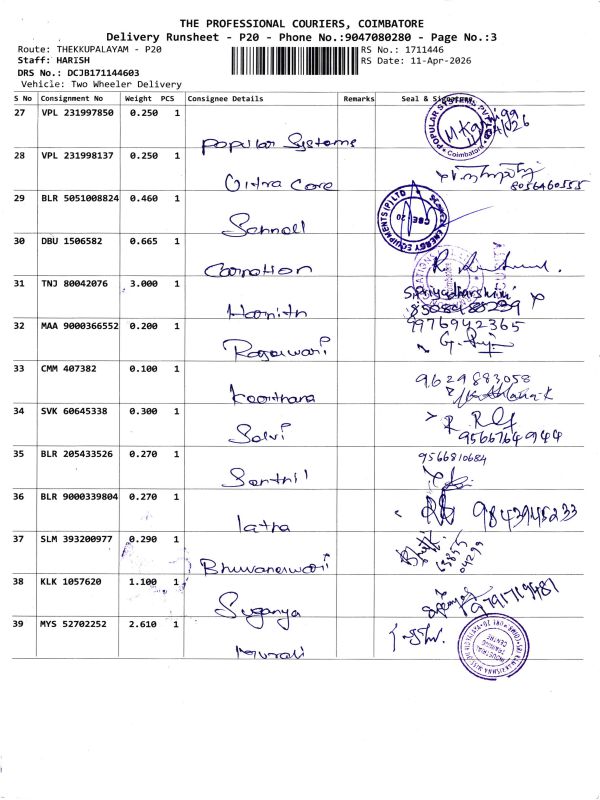 THE PROFESSIONAL COURIERS, COIMBATORE
Delivery Runsheet - P20 - Phone No.:9047080280 - Page No.:3
Route: THEKKUPALAYAM - P20 RS No.: 1711446
Staff: HARISH RS Date: 11-Apr-2026
DRS No.: DCJB171144603
Vehicle: Two Wheeler Delivery
S No Consignment No Weight PCS Consignee Details Remarks Seal & Signature
27 VPL 231997850 0.250 1
Popular Systems
28 VPL 231998137 0.250 1
8056460555
29 BLR 5051008824 0.460 1
30 DBU 1506582 0.665 1
Carnation
31 TNJ 80042076 3.000 1 S.Priyadharshini
Harnith
32 MAA 9000366552 0.200 1 9976942365
Rajeswari
33 CMM 407382 0.100 1 9629883058
34 SVK 60645338 0.300 1
Selvi 9566764944
35 BLR 205433526 0.270 1 9566810684
Senthil
36 BLR 9000339804 0.270 1
latha 9843945233
37 SLM 393200977 0.290 1
Bhuvaneswari
38 KLK 1057620 1.100 1
Suganya 9791719481
39 MYS 52702252 2.610 1
Murali